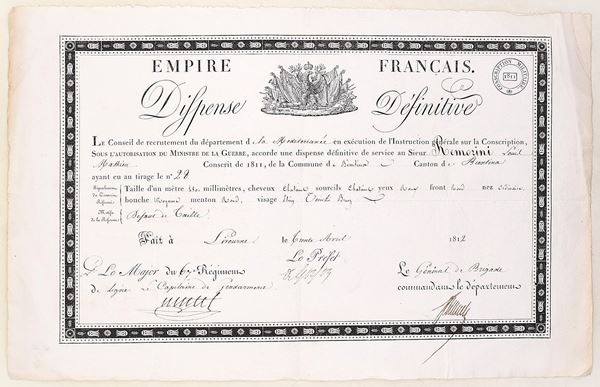 EMPIRE FRANÇAIS.
CONSCRIPTION MILITAIRE
1811
Dispense Définitive
LE Conseil de recrutement du département d la Méditerranée en exécution de l'Instruction générale sur la Conscription,
SOUS L'AUTORISATION DU MINISTRE DE LA GUERRE, accorde une dispense définitive de service au Sieur Remorini
Mathieu Conscrit de 1811, de la Commune d Canton d
ayant eu au tirage le n° 28
Signalement du Conscrit Réformé. Taille d'un mètre millimètres, cheveux chatains sourcils chatains yeux front rond nez ordinaire
bouche moyenne menton rond, visage teint
Motifs de la Réforme Défaut de Taille
Fait à Livourne le trente Avril 1812
Le Préfet
Le Major du 67e Régiment
de ligne Le Capitaine de gendarmerie
Le Général de Brigade
commandant le département